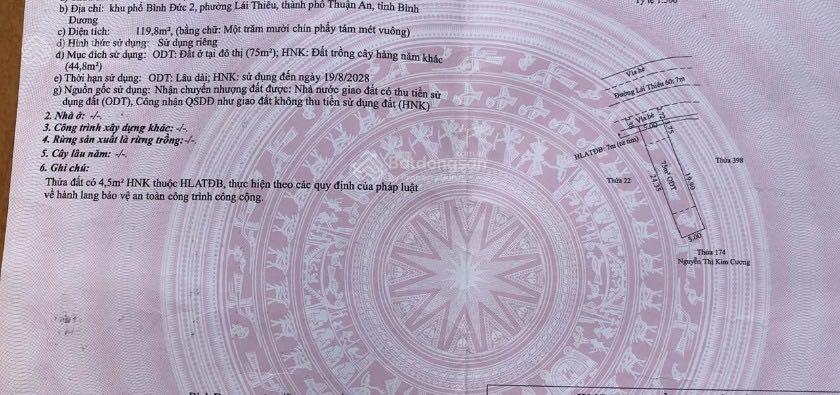 b) Địa chỉ: khu phố Bình Đức 2, phường Lái Thiêu, thành phố Thuận An, tỉnh Bình
Dương
c) Diện tích: 119,8m², (bằng chữ: Một trăm mười chín phẩy tám mét vuông)
d) Hình thức sử dụng: Sử dụng riêng
đ) Mục đích sử dụng: ODT: Đất ở tại đô thị (75m²); HNK: Đất trồng cây hàng năm khác
(44,8m²)
e) Thời hạn sử dụng: ODT: Lâu dài; HNK: sử dụng đến ngày 19/8/2028
g) Nguồn gốc sử dụng: Nhận chuyển nhượng đất được: Nhà nước giao đất có thu tiền sử
dụng đất (ODT), Công nhận QSDĐ như giao đất không thu tiền sử dụng đất (HNK)
2. Nhà ở: -/-
3. Công trình xây dựng khác: -/-.
4. Rừng sản xuất là rừng trồng: -/-.
5. Cây lâu năm: -/-.
6. Ghi chú:
Thửa đất có 4,5m² HNK thuộc HLATĐB, thực hiện theo các quy định của pháp luật
về hành lang bảo vệ an toàn công trình công cộng.
Batdongsan
Vỉa hè
Đường Lái Thiêu 60: 7m
Vỉa hè
HLATĐB: 7m (từ tim)
5.00
75m² ODT
24.35
19.90
5.00
Thửa 398
Thửa 22
Thửa 174
Nguyễn Thị Kim Cương